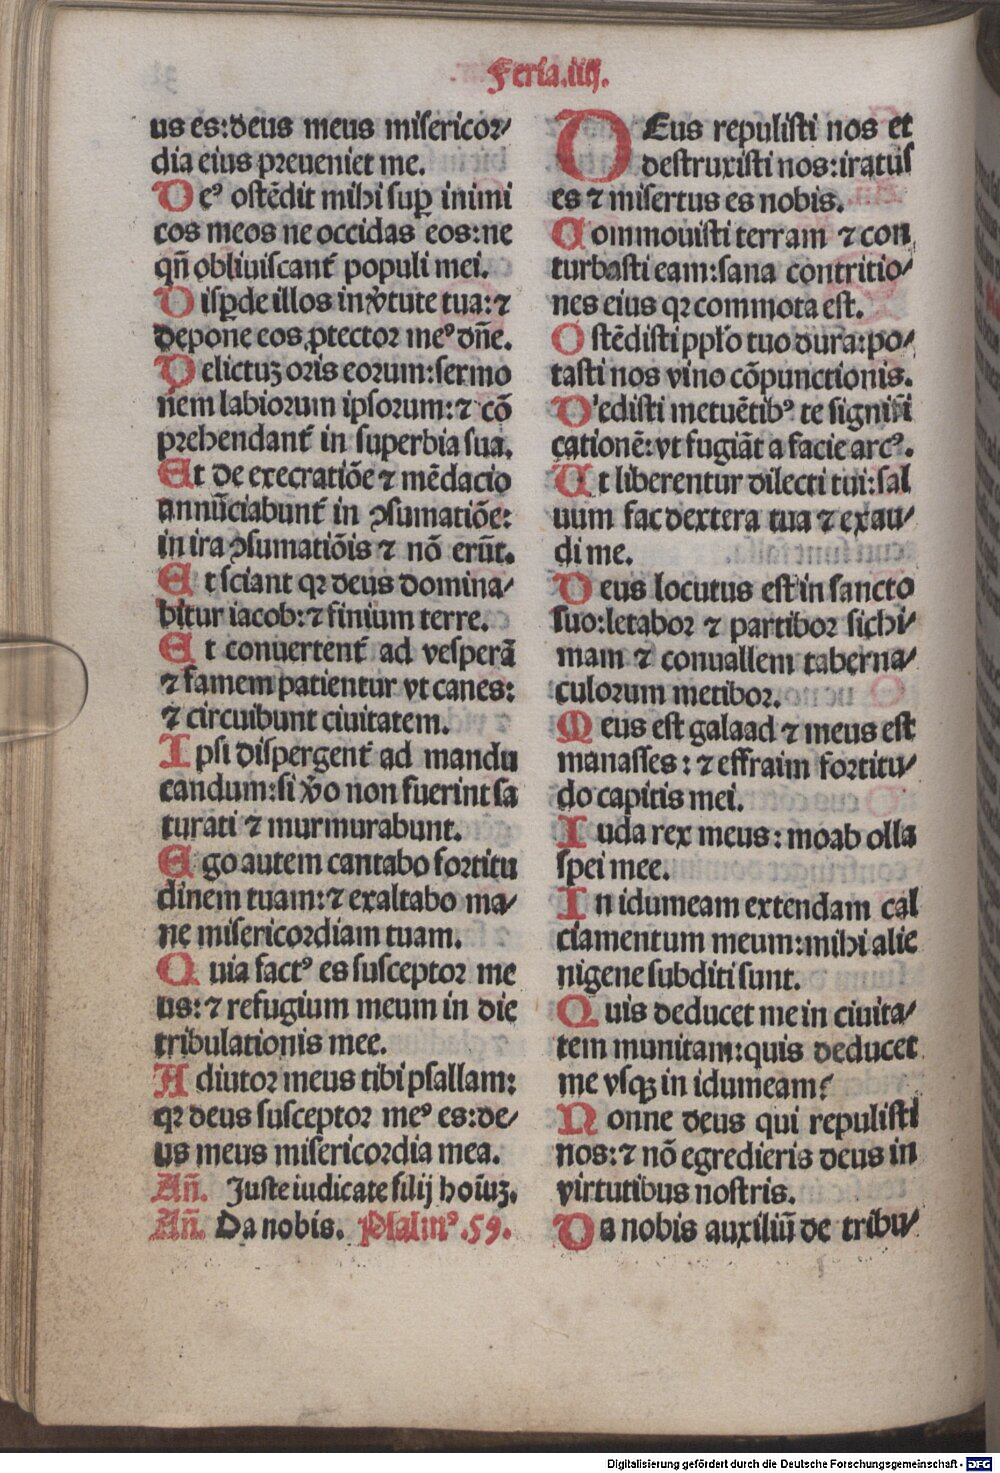 Feria.iiij.
us es:deus meus misericor/
dia eius preueniet me.
Deꝰ ostēdit mihi suꝑ inimi
cos meos ne occidas eos:ne
qñ obliuiscant᷑ populi mei.
Disꝑde illos in v̾tute tua:⁊
depone eos ꝓtector meꝰ dñe.
Delictuꝫ oris eorum:sermo
nem labiorum ipsorum:⁊ cō
prehendant᷑ in superbia sua.
Et de execratiōe ⁊ mēdacio
annūciabunt᷑ in ꝯsumatiōe:
in ira ꝯsumatiōis ⁊ nō erūt.
Et sciant qꝛ deus domina/
bitur iacob:⁊ finium terre.
Et conuertent᷑ ad vesperā
⁊ famem patientur vt canes:
⁊ circuibunt ciuitatem.
Ipsi dispergent᷑ ad mandu
candum:si v̾o non fuerint sa
turati ⁊ murmurabunt.
Ego autem cantabo fortitu
dinem tuam:⁊ exaltabo ma/
ne misericordiam tuam.
Quia factꝰ es susceptor me
us:⁊ refugium meum in die
tribulationis mee.
Adiutor meus tibi psallam:
qꝛ deus susceptor meꝰ es:de/
us meus misericordia mea.
Añ. Juste iudicate filij hoīuꝫ.
Añ. Da nobis. Psalmꝰ .59.
DEus repulisti nos et
destruxisti nos:iratus
es ⁊ misertus es nobis.
Commouisti terram ⁊ con
turbasti eam:sana contritio/
nes eius qꝛ commota est.
Ostēdisti pplo tuo dura:po/
tasti nos vino cōpunctionis.
Dedisti metuētibꝰ te signifi
cationē:vt fugiāt a facie arcꝰ.
Ut liberentur dilecti tui:sal
uum fac dextera tua ⁊ exau/
di me.
Deus locutus est in sancto
suo:letabor ⁊ partibor sichi/
mam ⁊ conuallem taberna/
culorum metibor.
Meus est galaad ⁊ meus est
manasses: ⁊ effraim fortitu/
do capitis mei.
Iuda rex meus: moab olla
spei mee.
In idumeam extendam cal
ciamentum meum:mihi alie
nigene subditi sunt.
Quis deducet me in ciuita/
tem munitam:quis deducet
me vsqꝫ in idumeam?
Nonne deus qui repulisti
nos:⁊ nō egredieris deus in
virtutibus nostris.
Da nobis auxiliū de tribu/
Digitalisierung gefördert durch die Deutsche Forschungsgemeinschaft - DFG